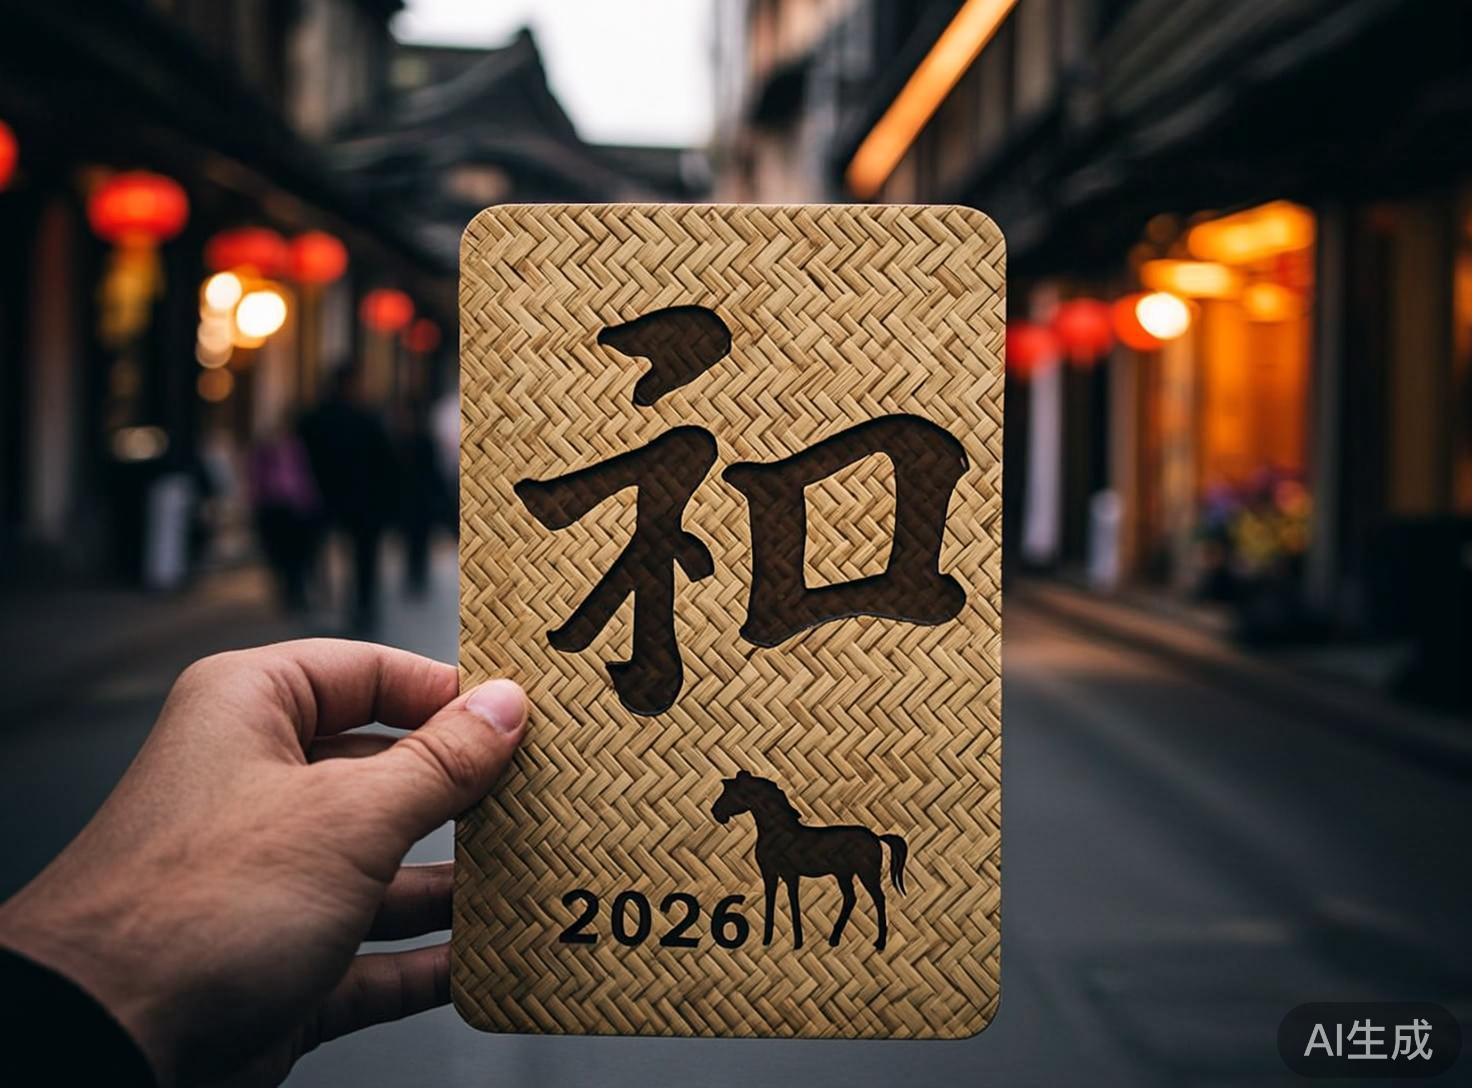 2026
AI生成